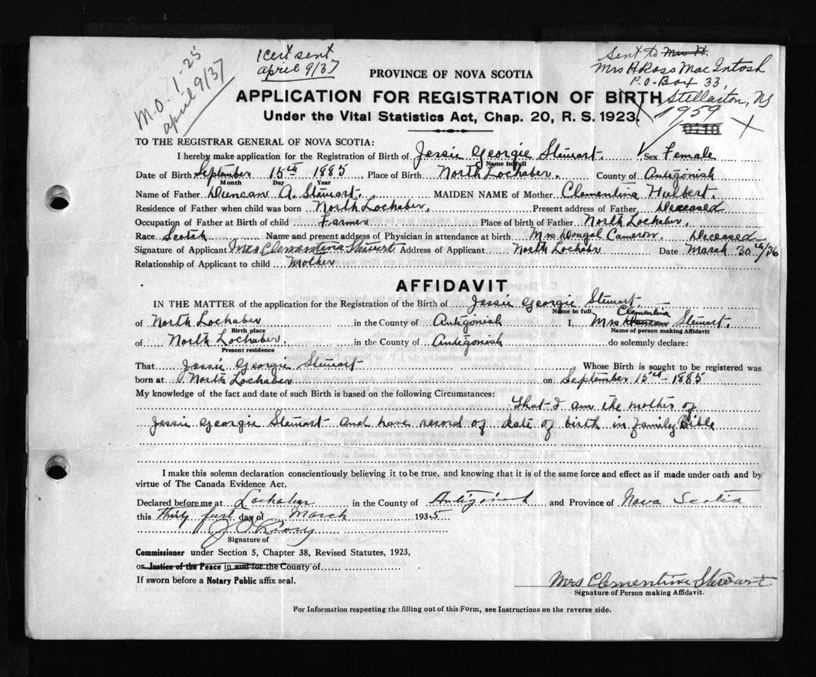 M.O. 1.25
april 9/37
1 cert sent
april 9/37
Sent to Mrs H.
Mrs H Ross MacIntosh
P.O. Box 33,
Stellarton, NS
1959
X
PROVINCE OF NOVA SCOTIA
APPLICATION FOR REGISTRATION OF BIRTH
Under the Vital Statistics Act, Chap. 20, R. S. 1923.
TO THE REGISTRAR GENERAL OF NOVA SCOTIA:
I hereby make application for the Registration of Birth of Jessie Georgie Stewart. Sex Female
Name in full
Date of Birth September 15th 1885 Place of Birth North Lochaber. County of Antigonish
Month Day Year
Name of Father Duncan A. Stewart. MAIDEN NAME of Mother Clementina Hulbert.
Residence of Father when child was born North Lochaber. Present address of Father Deceased
Occupation of Father at Birth of child Farmer Place of Birth of Father North Lochaber.
Race Scotch Name and present address of Physician in attendance at birth Mrs Dougal Cameron. Deceased
Signature of Applicant Mrs Clementina Stewart Address of Applicant North Lochaber Date March 30th/36
Relationship of Applicant to child Mother
AFFIDAVIT
IN THE MATTER of the application for the Registration of the Birth of Jessie Georgie Stewart.
Name in full Clementina
of North Lochaber in the County of Antigonish I, Mrs Duncan Stewart.
Birth place Name of person making Affidavit
of North Lochaber. in the County of Antigonish do solemnly declare:
Present residence
That Jessie Georgie Stewart Whose Birth is sought to be registered was
born at North Lochaber on September 15th - 1885
My knowledge of the fact and date of such Birth is based on the following Circumstances:
That I am the mother of
Jessie Georgie Stewart and have record of date of birth in family Bible
I make this solemn declaration conscientiously believing it to be true, and knowing that it is of the same force and effect as if made under oath and by
virtue of The Canada Evidence Act.
Declared before me at Lochaber in the County of Antigonish and Province of Nova Scotia
this thirty first day of March 1935
Signature of
Commissioner under Section 5, Chapter 38, Revised Statutes, 1923,
or Justice of the Peace in and for the County of
If sworn before a Notary Public affix seal.
Mrs Clementina Stewart
Signature of Person making Affidavit.
For Information respecting the filling out of this Form, see Instructions on the reverse side.